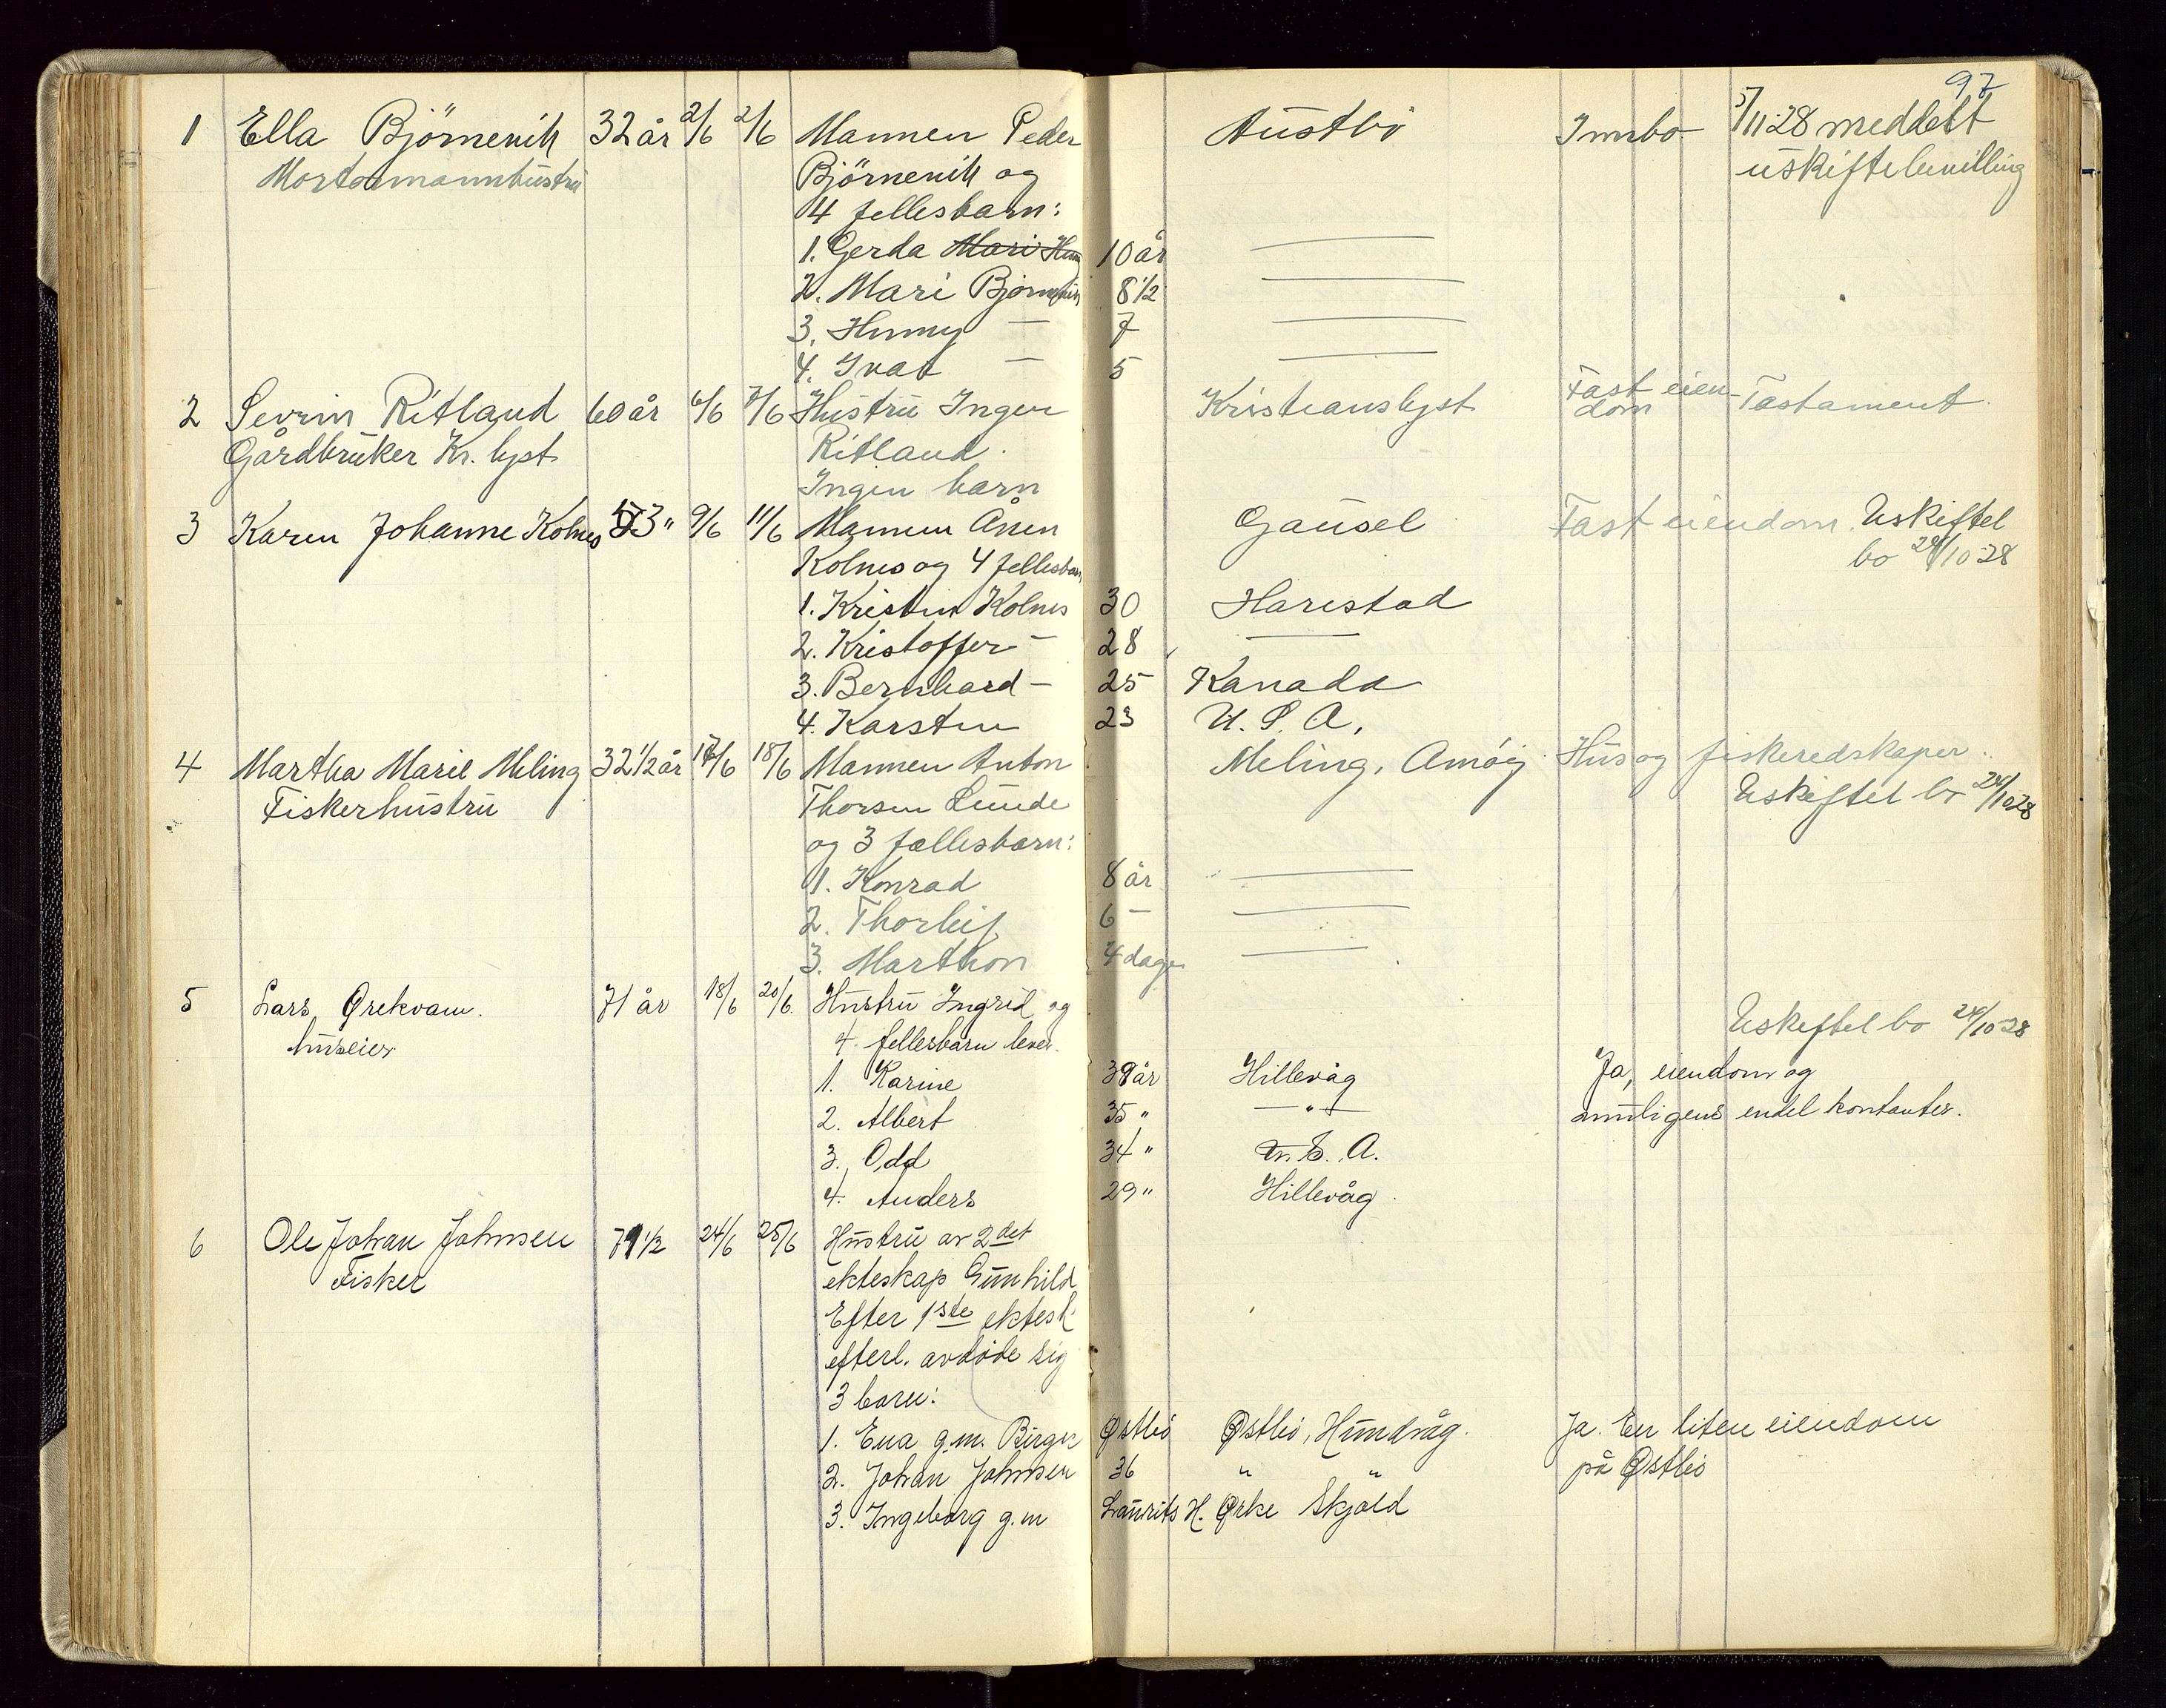 97
1 Ella Björnevik 32 år 2/6 2/6 Mannen Peder Austbö Innbo 5/11-28 meddelt
Björnevik og uskiftebevilling
4 fellesbarn:
1. Gerda 10 år
2. Mari Björnevik 8 1/2
3. Hunny — 7
4. Ivat — 5
2 Sevrin Ritland 60 år 6/6 7/6 Hustru Inger Kristianslyst Fast eien- Testament
dom
Gårdbruker Kr. lyst Ritland.
Ingen barn
3 Karen Johanne Kolnes 53 " 9/6 11/6 Mannen Ånen Gausel Fast eiendom. Uskiftet
Kolnes og 4 fellesbarn bo 24/10 28
1. Kristen Kolnes 30 Harestad
2. Kristoffer — 28 —
3. Bernhard — 25 Kanada
4. Karsten 23 U. S. A.
4 Martha Marie Meling 32 1/2 år 17/6 18/6 Mannen Anton Meling, Amøy Hus og fiskeredskaper.
Fiskerhustru Thorsen Lunde Uskiftet bo 24/10 28
og 3 fellesbarn:
1. Konrad 8 år
2. Thorleif 6 —
3. Marthon 4 dager
5 Lars Ørekvam. 71 år 18/6 20/6. Hustru Ingrid og Uskiftet bo 24/10-28
huseier 4. fellesbarn lever.
1. Karine 39 år Hillevåg Ja, eiendom og
2. Albert 35 " — " — muligens endel kontanter.
3. Odd 34 " U. S. A.
4. Anders 29 " Hillevåg.
6 Ole Johan Johnsen 71 1/2 24/6 25/6 Hustru av 2det
Fisker ekteskap Gunhild
Efter 1ste ektesk.
efterl. avdøde sig
3 barn:
1. Ena g.m. Birger Østbö Østbö, Hundvåg. Ja. En liten eiendom
2. Johan Johnsen 36 " " på Østbö
3. Ingeborg g.m Laurits H. Ørke Skjold